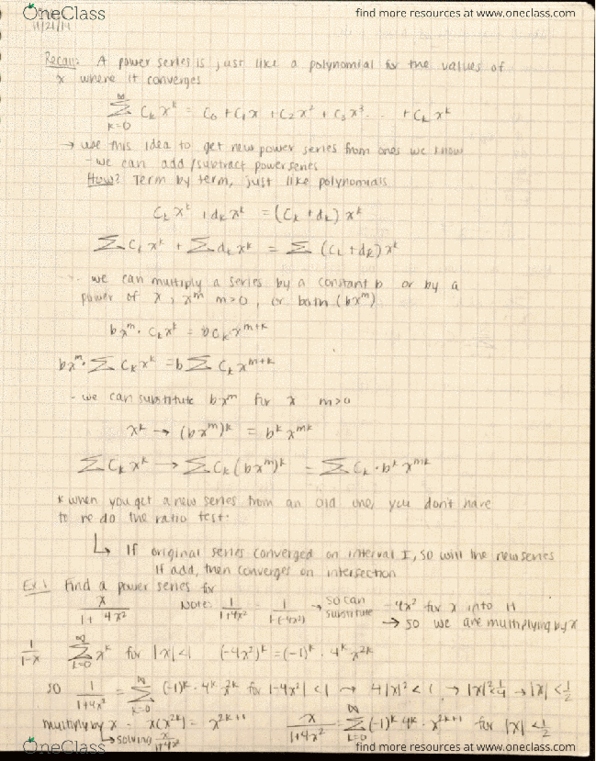 OneClass find more resources at www.oneclass.com
11/21/14
Recall: A power series is just like a polynomial for the values of
x where it converges
∞ ∑ k=0 Cₖ xᵏ = C₀ + C₁x + C₂x² + C₃x³ . . . + Cₖ xᵏ
→ use this idea to get new power series from ones we know
- we can add/subtract power series
How? Term by term, just like polynomials
Cₖ xᵏ + dₖ xᵏ = (Cₖ + dₖ) xᵏ
∑ Cₖ xᵏ + ∑ dₖ xᵏ = ∑ (Cₖ + dₖ) xᵏ
- we can multiply a series by a constant b or by a
power of x, xᵐ m>0, or both (bxᵐ)
bxᵐ · Cₖ xᵏ = bCₖ xᵐ⁺ᵏ
bxᵐ · ∑ Cₖ xᵏ = b ∑ Cₖ xᵐ⁺ᵏ
- we can substitute bxᵐ for x m>0
xᵏ → (bxᵐ)ᵏ = bᵏ xᵐᵏ
∑ Cₖ xᵏ → ∑ Cₖ (bxᵐ)ᵏ = ∑ Cₖ · bᵏ xᵐᵏ
* when you get a new series from an old one, you don't have
to re do the ratio test.
↳ If original series converged on interval I, so will the new series
If add, then converges on intersection
Ex.1 Find a power series for
x/(1+4x²) Note: 1/(1+4x²) = 1/(1-(-4x²)) → so can substitute -4x² for x into it
→ so we are multiplying by x
1/(1-x) ∞ ∑ k=0 xᵏ for |x|<1 (-4x²)ᵏ = (-1)ᵏ · 4ᵏ x²ᵏ
so 1/(1+4x²) = ∞ ∑ k=0 (-1)ᵏ · 4ᵏ x²ᵏ for |-4x²| < 1 → 4|x|² < 1 → |x|² < 1/4 → |x| < 1/2
multiply by x = x(x²ᵏ) = x²ᵏ⁺¹ x/(1+4x²) = ∞ ∑ k=0 (-1)ᵏ 4ᵏ · x²ᵏ⁺¹ for |x| < 1/2
↳ solving x/(1+4x²)
OneClass find more resources at www.oneclass.com